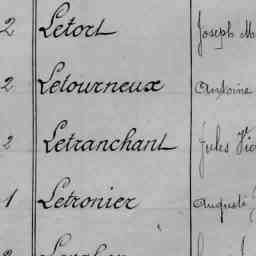 2 Letort Joseph M
2 Letourneux Antoine
2 Letranchant Jules Vic
1 Letronier Auguste